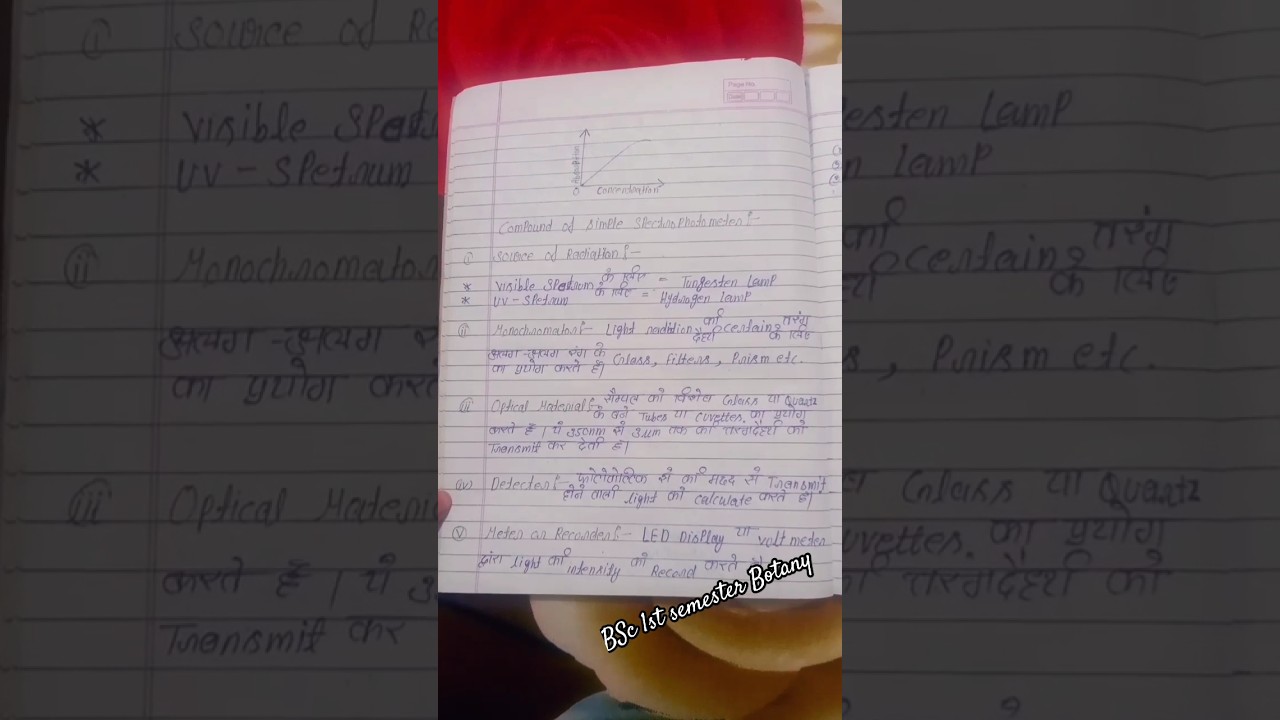 Page No.
Date
Concentration
Compound of Simple Spectrophotometer :-
(i) Source of Radiation :-
* Visible Spectrum के लिए = Tungesten Lamp
* UV - Spetrum के लिए = Hydrogen Lamp
(ii) Monochromator :- Light radiation की certaing तरंग
दैर्ध्य के लिए
अलग-अलग रंग के Glass, Filters, Prism etc.
का प्रयोग करते हैं।
(iii) Optical Material :- सैम्पल को विशेष Glass या Quartz
के बने Tubes या Cuvettes का प्रयोग
करते हैं। ये 350nm से 3µm तक की तरंगदैर्ध्य को
Transmit कर देती है।
(iv) Detecter :- फोटोवोल्टिक से की मदद से Transmit
होने वाली light को calculate करते हैं।
(v) Meter or Recorder :- LED Display या volt meter
द्वारा light की intensity को Record करते
BSc 1st semester Botany